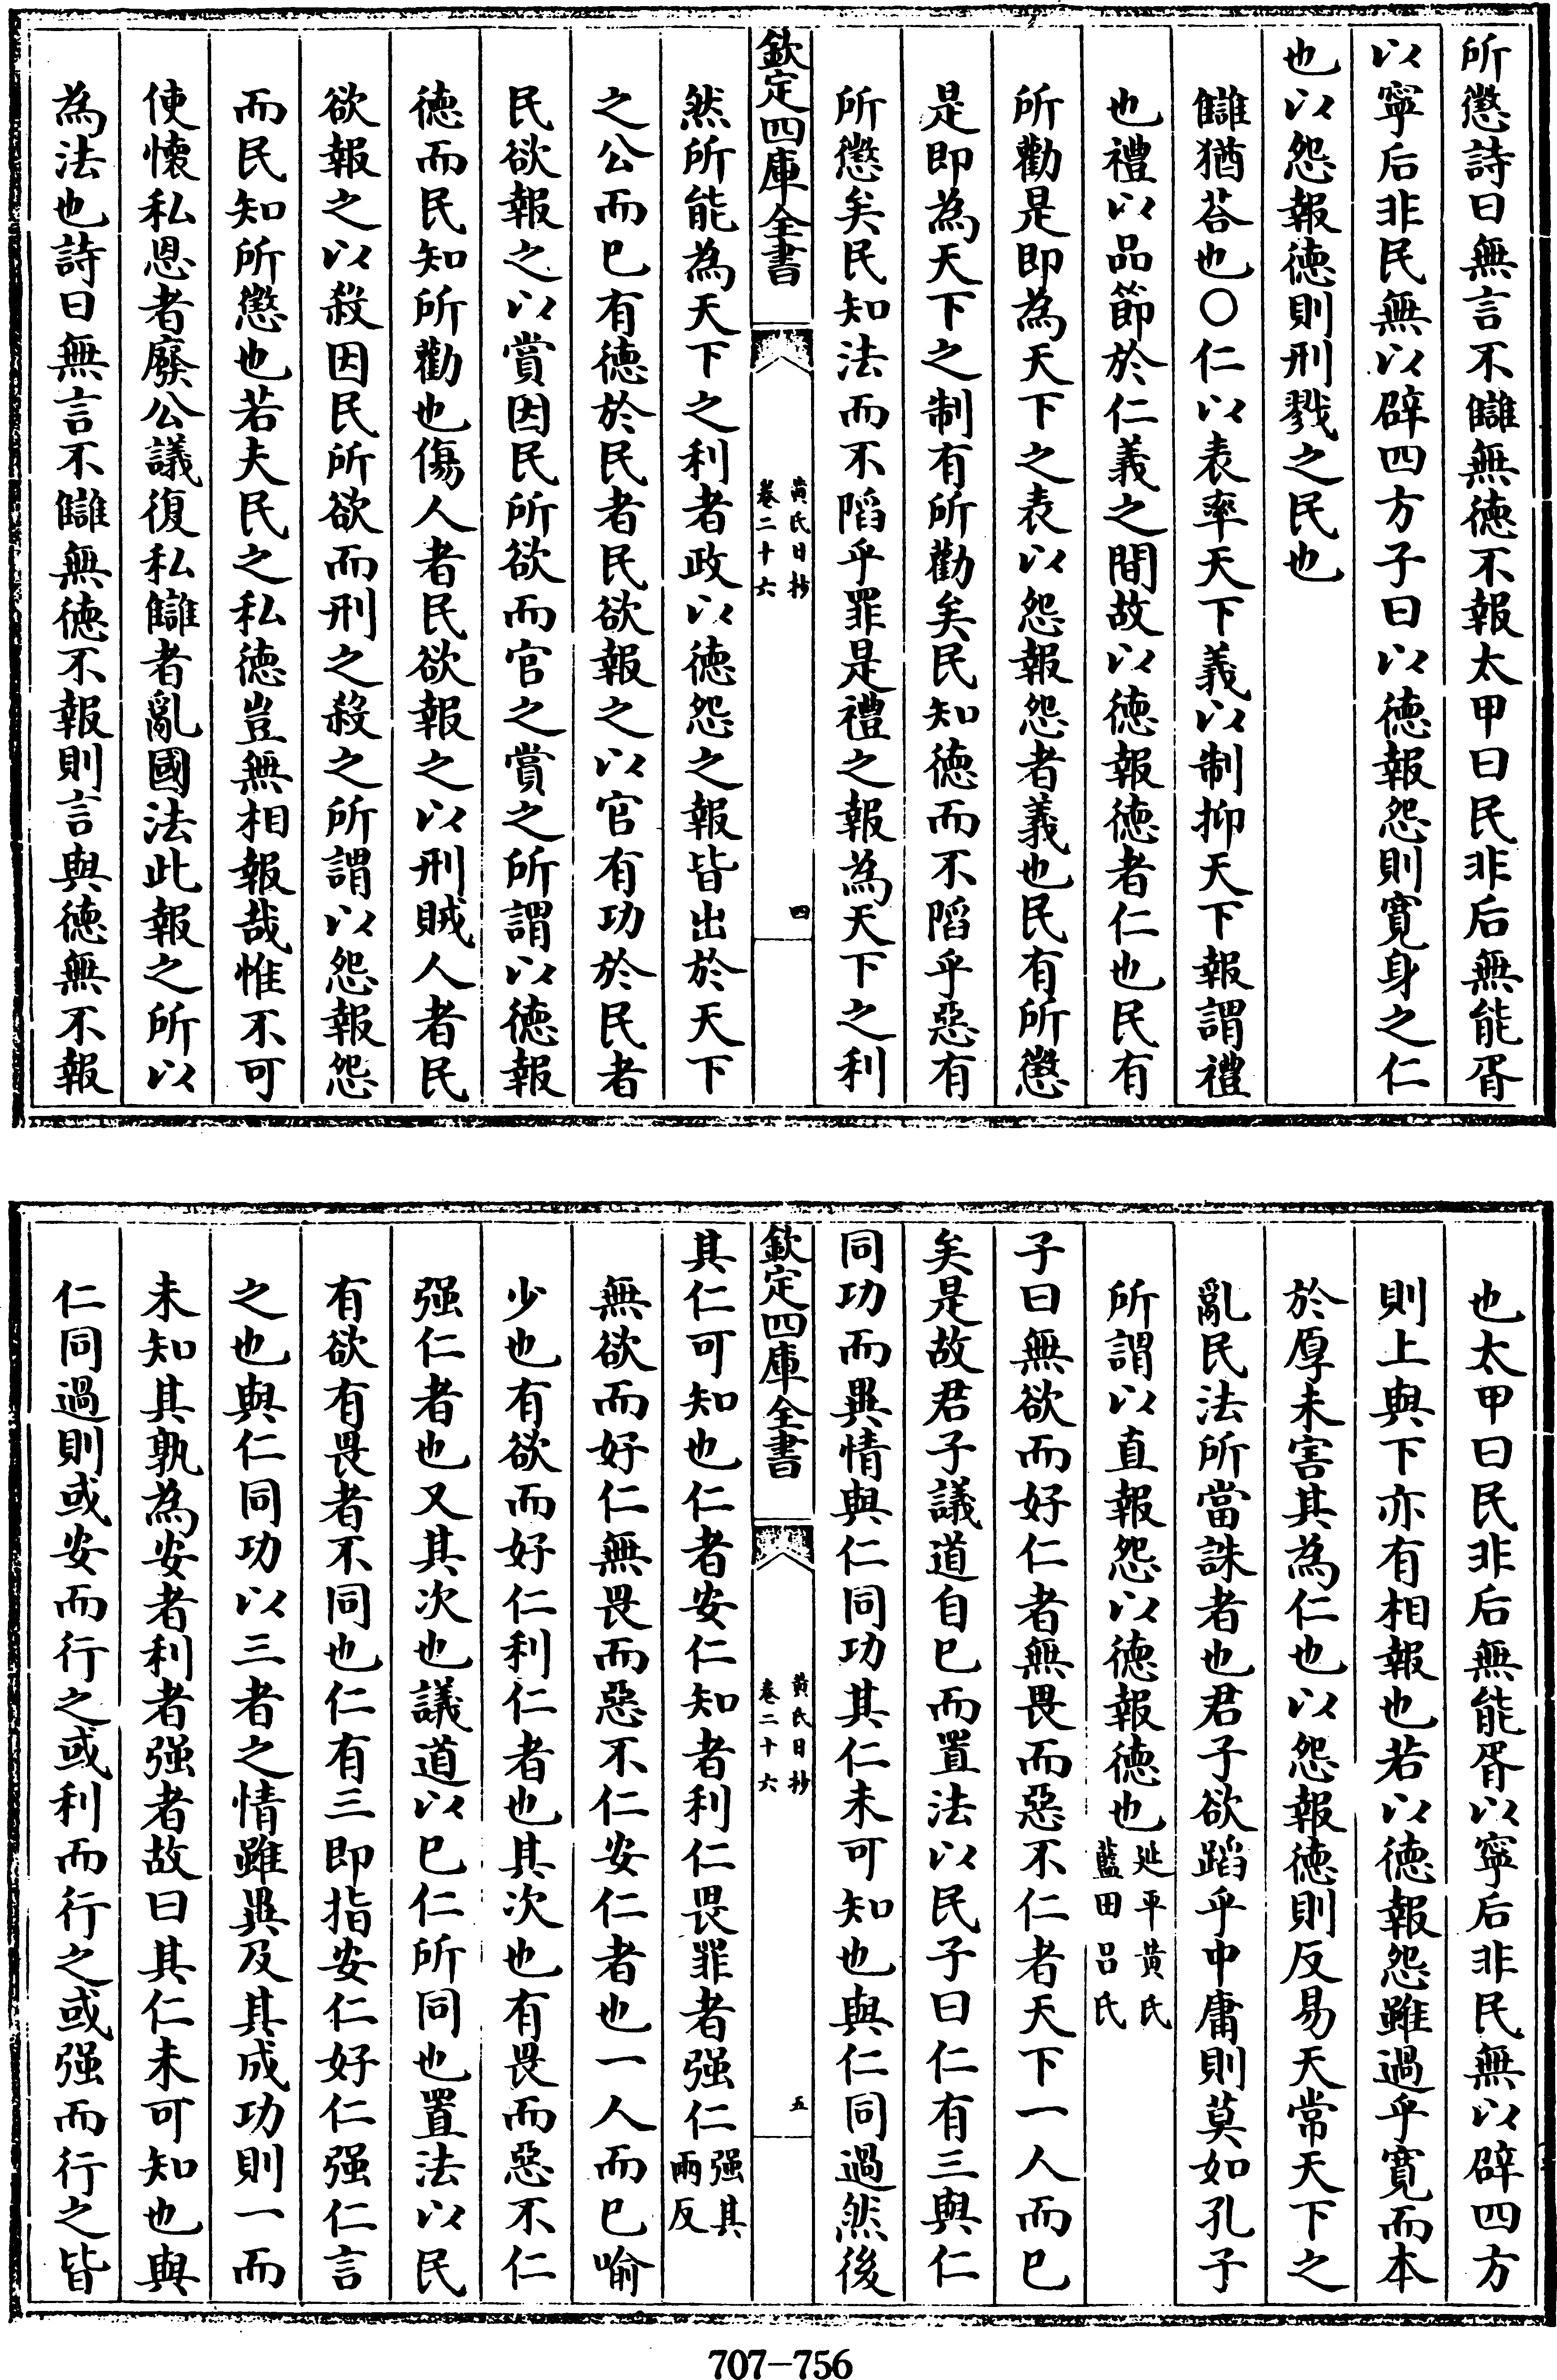 所懲詩曰無言不讎無德不報太甲曰民非后無能胥
以寧后非民無以辟四方子曰以德報怨則寬身之仁
也以怨報德則刑戮之民也
讎猶荅也○仁以表率天下義以制抑天下報謂禮
也禮以品節於仁義之間故以德報德者仁也民有
所勸是即為天下之表以怨報怨者義也民有所懲
是即為天下之制有所勸矣民知德而不陷乎惡有
所懲矣民知法而不陷乎罪是禮之報為天下之利
欽定四庫全書
黃氏日抄
卷二十六
四
然所能為天下之利者政以德怨之報皆出於天下
之公而已有德於民者民欲報之以官有功於民者
民欲報之以賞因民所欲而官之賞之所謂以德報
德而民知所勸也傷人者民欲報之以刑賊人者民
欲報之以殺因民所欲而刑之殺之所謂以怨報怨
而民知所懲也若夫民之私德豈無相報哉惟不可
使懷私恩者廢公議復私讎者亂國法此報之所以
為法也詩曰無言不讎無德不報則言與德無不報
也太甲曰民非后無能胥以寧后非民無以辟四方
則上與下亦有相報也若以德報怨雖過乎寬而本
於厚未害其為仁也以怨報德則反易天常天下之
亂民法所當誅者也君子欲蹈乎中庸則莫如孔子
所謂以直報怨以德報德也延平黃氏藍田呂氏
子曰無欲而好仁者無畏而惡不仁者天下一人而已
矣是故君子議道自已而置法以民子曰仁有三與仁
同功而異情與仁同功其仁未可知也與仁同過然後
欽定四庫全書
黃氏日抄
卷二十六
五
其仁可知也仁者安仁知者利仁畏罪者强仁强其兩反
無欲而好仁無畏而惡不仁安仁者也一人而已喻
少也有欲而好仁利仁者也其次也有畏而惡不仁
强仁者也又其次也議道以已仁所同也置法以民
有欲有畏者不同也仁有三即指安仁好仁强仁言
之也與仁同功以三者之情雖異及其成功則一而
未知其孰為安者利者强者故曰其仁未可知也與
仁同過則或安而行之或利而行之或强而行之皆
707-756